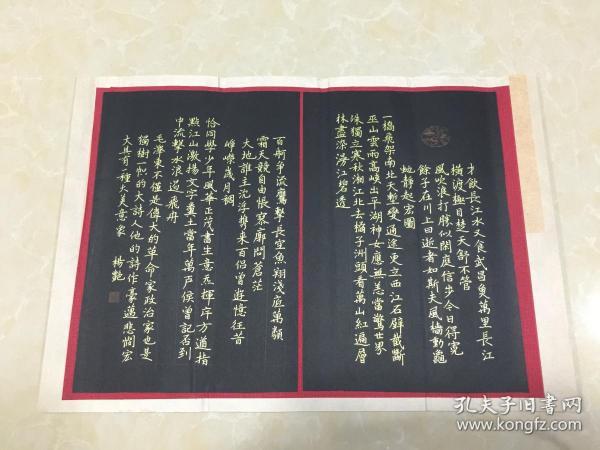 才飲長江水又食武昌魚萬里長江
橫渡極目楚天舒不管
風吹浪打勝似閑庭信步今日得寬
餘子在川上曰逝者如斯夫風檣動龜
蛇靜起宏圖
一橋飛架南北天塹變通途更立西江石壁截斷
巫山雲雨高峽出平湖神女應無恙當驚世界
殊獨立寒秋湘江北去橘子洲頭看萬山紅遍層
林盡染漫江碧透
百舸争流鷹擊長空魚翔淺底萬類
霜天競自由悵寥廓問蒼茫
大地誰主沉浮携来百侣曾遊憶往昔
崢嶸歲月稠
恰同學少年風華正茂書生意氣揮斥方遒指
點江山激揚文字糞土當年萬户侯曾記否到
中流擊水浪遏飛舟
毛澤東不僅是偉大的革命家政治家也是
獨樹一幟的大詩人他的詩作豪邁悲愴宏
大具有一種大美意象
楊艷
孔夫子旧书网
www.kongfz.com